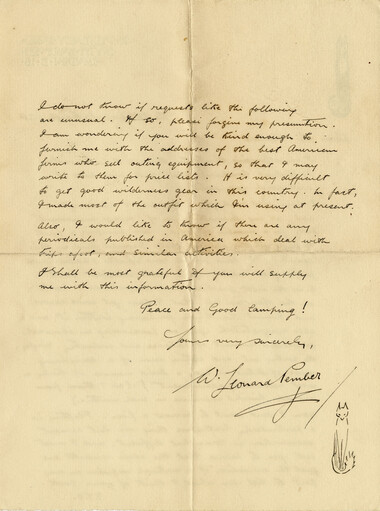 I do not know if requests like the following
are unusual. If so, please forgive my presumtion.
I am wondering if you will be kind enough to
furnish me with the addresses of the best American
firms who sell outing equipment, so that I may
write to them for price lists. It is very difficult
to get good wilderness gear in this country. In fact,
I made most of the outfit which I'm using at present.
Also, I would like to know if there are any
periodicals published in America which deal with
trips afoot, and similar activities.
I shall be most grateful if you will supply
me with this information.
Peace and Good Camping!
Yours very sincerely,
W. Leonard Pember